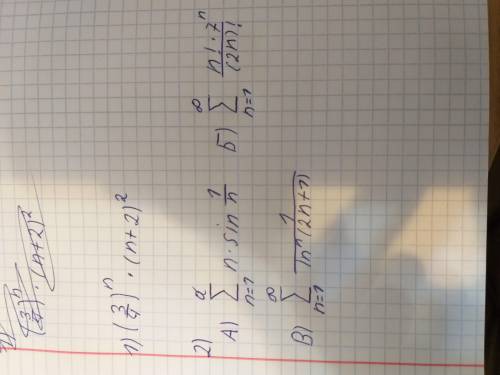 1) (3/4)^n · (n+2)^2
1) (3/4)^n · (n+2)^2
2)
А) ∞ ∑ n=1 n · sin 1/n
Б) ∞ ∑ n=1 n! · 7^n / (2n)!
В) ∞ ∑ n=1 1 / ln^n (2n+1)